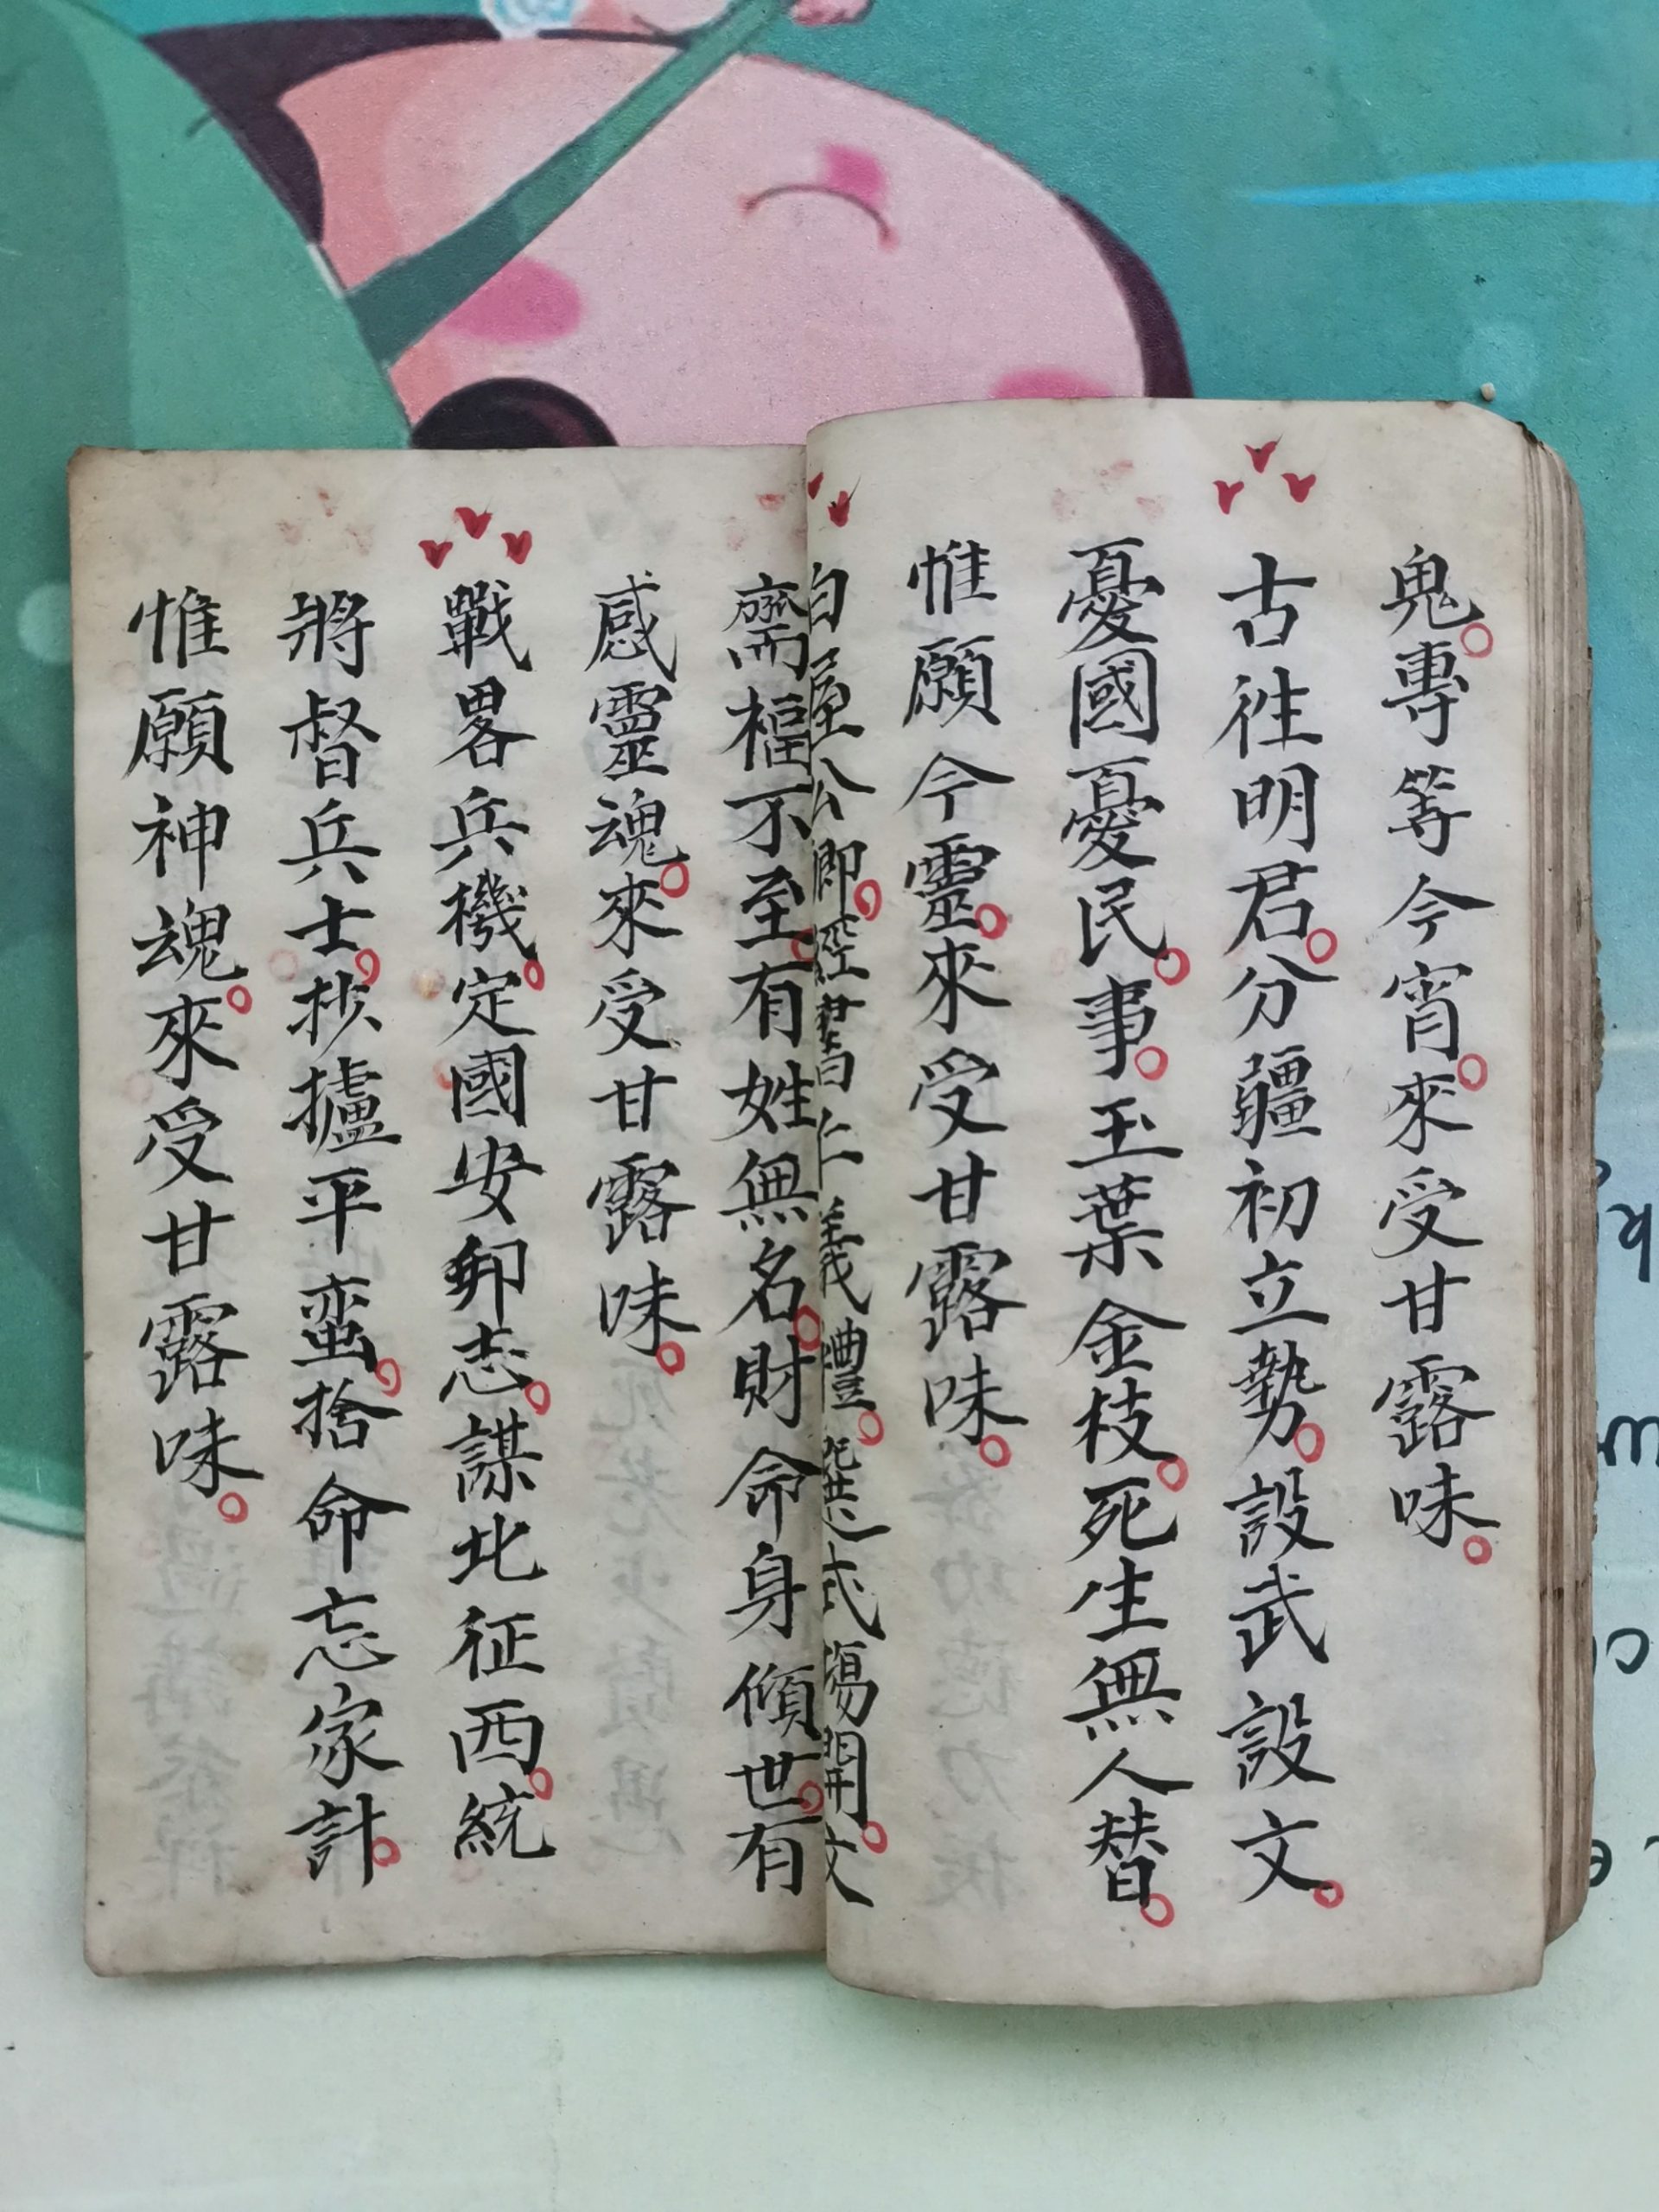 鬼專等今宵來受甘露味
古徃明君分疆初立勢設武設文
憂國憂民事玉葉金枝死生無人替
惟願今靈來受甘露味
白屋公卿經書仁義禮選式場開文
齋福不至有姓無名財命身傾世有
感靈魂來受甘露味
戰畧兵機定國安邦志謀北征西統
將督兵士抄攎平蛮捨命忘家計
惟願神魂來受甘露味